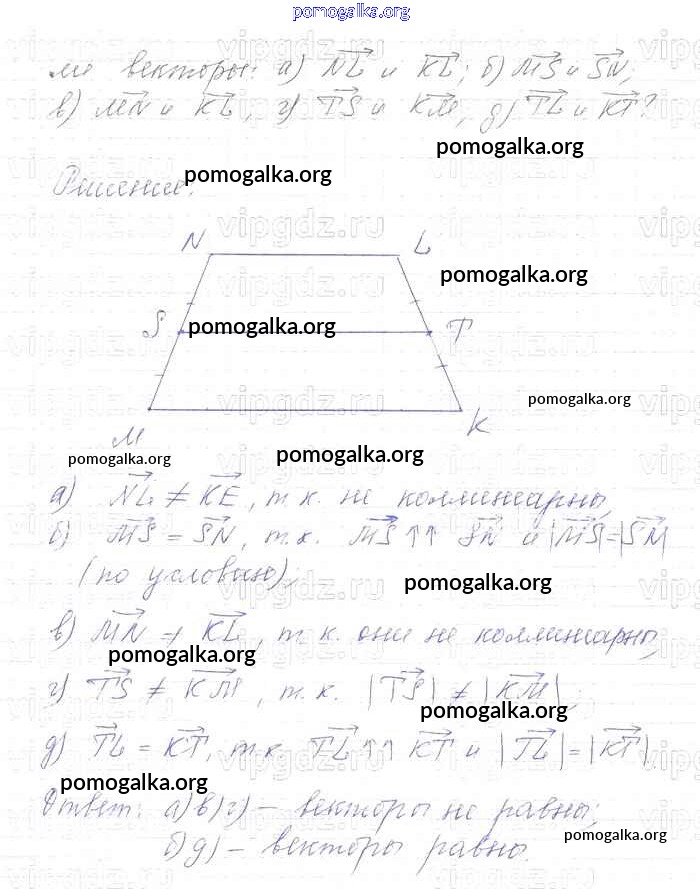 pomogalka.org
ли векторы: а) NL и KL; б) MS и SN;
в) MN и KL, г) TS и KM, д) TL и KT?
pomogalka.org
Решение:
pomogalka.org
N L
pomogalka.org
S pomogalka.org T
pomogalka.org
M K
pomogalka.org
pomogalka.org
а) NL ≠ KE, т.к. не коллинеарны,
б) MS = SN, т.к. MS ↑↑ SN и |MS|=|SN|
(по условию);
pomogalka.org
в) MN ≠ KL, т.к. они не коллинеарны,
pomogalka.org
г) TS ≠ KM, т.к. |TS| ≠ |KM|,
pomogalka.org
д) TL = KT, т.к. TL ↑↑ KT и |TL|=|KT|.
pomogalka.org
Ответ: а) в) г) – векторы не равны;
pomogalka.org
б) д) – векторы равны.
vipgdz.ru